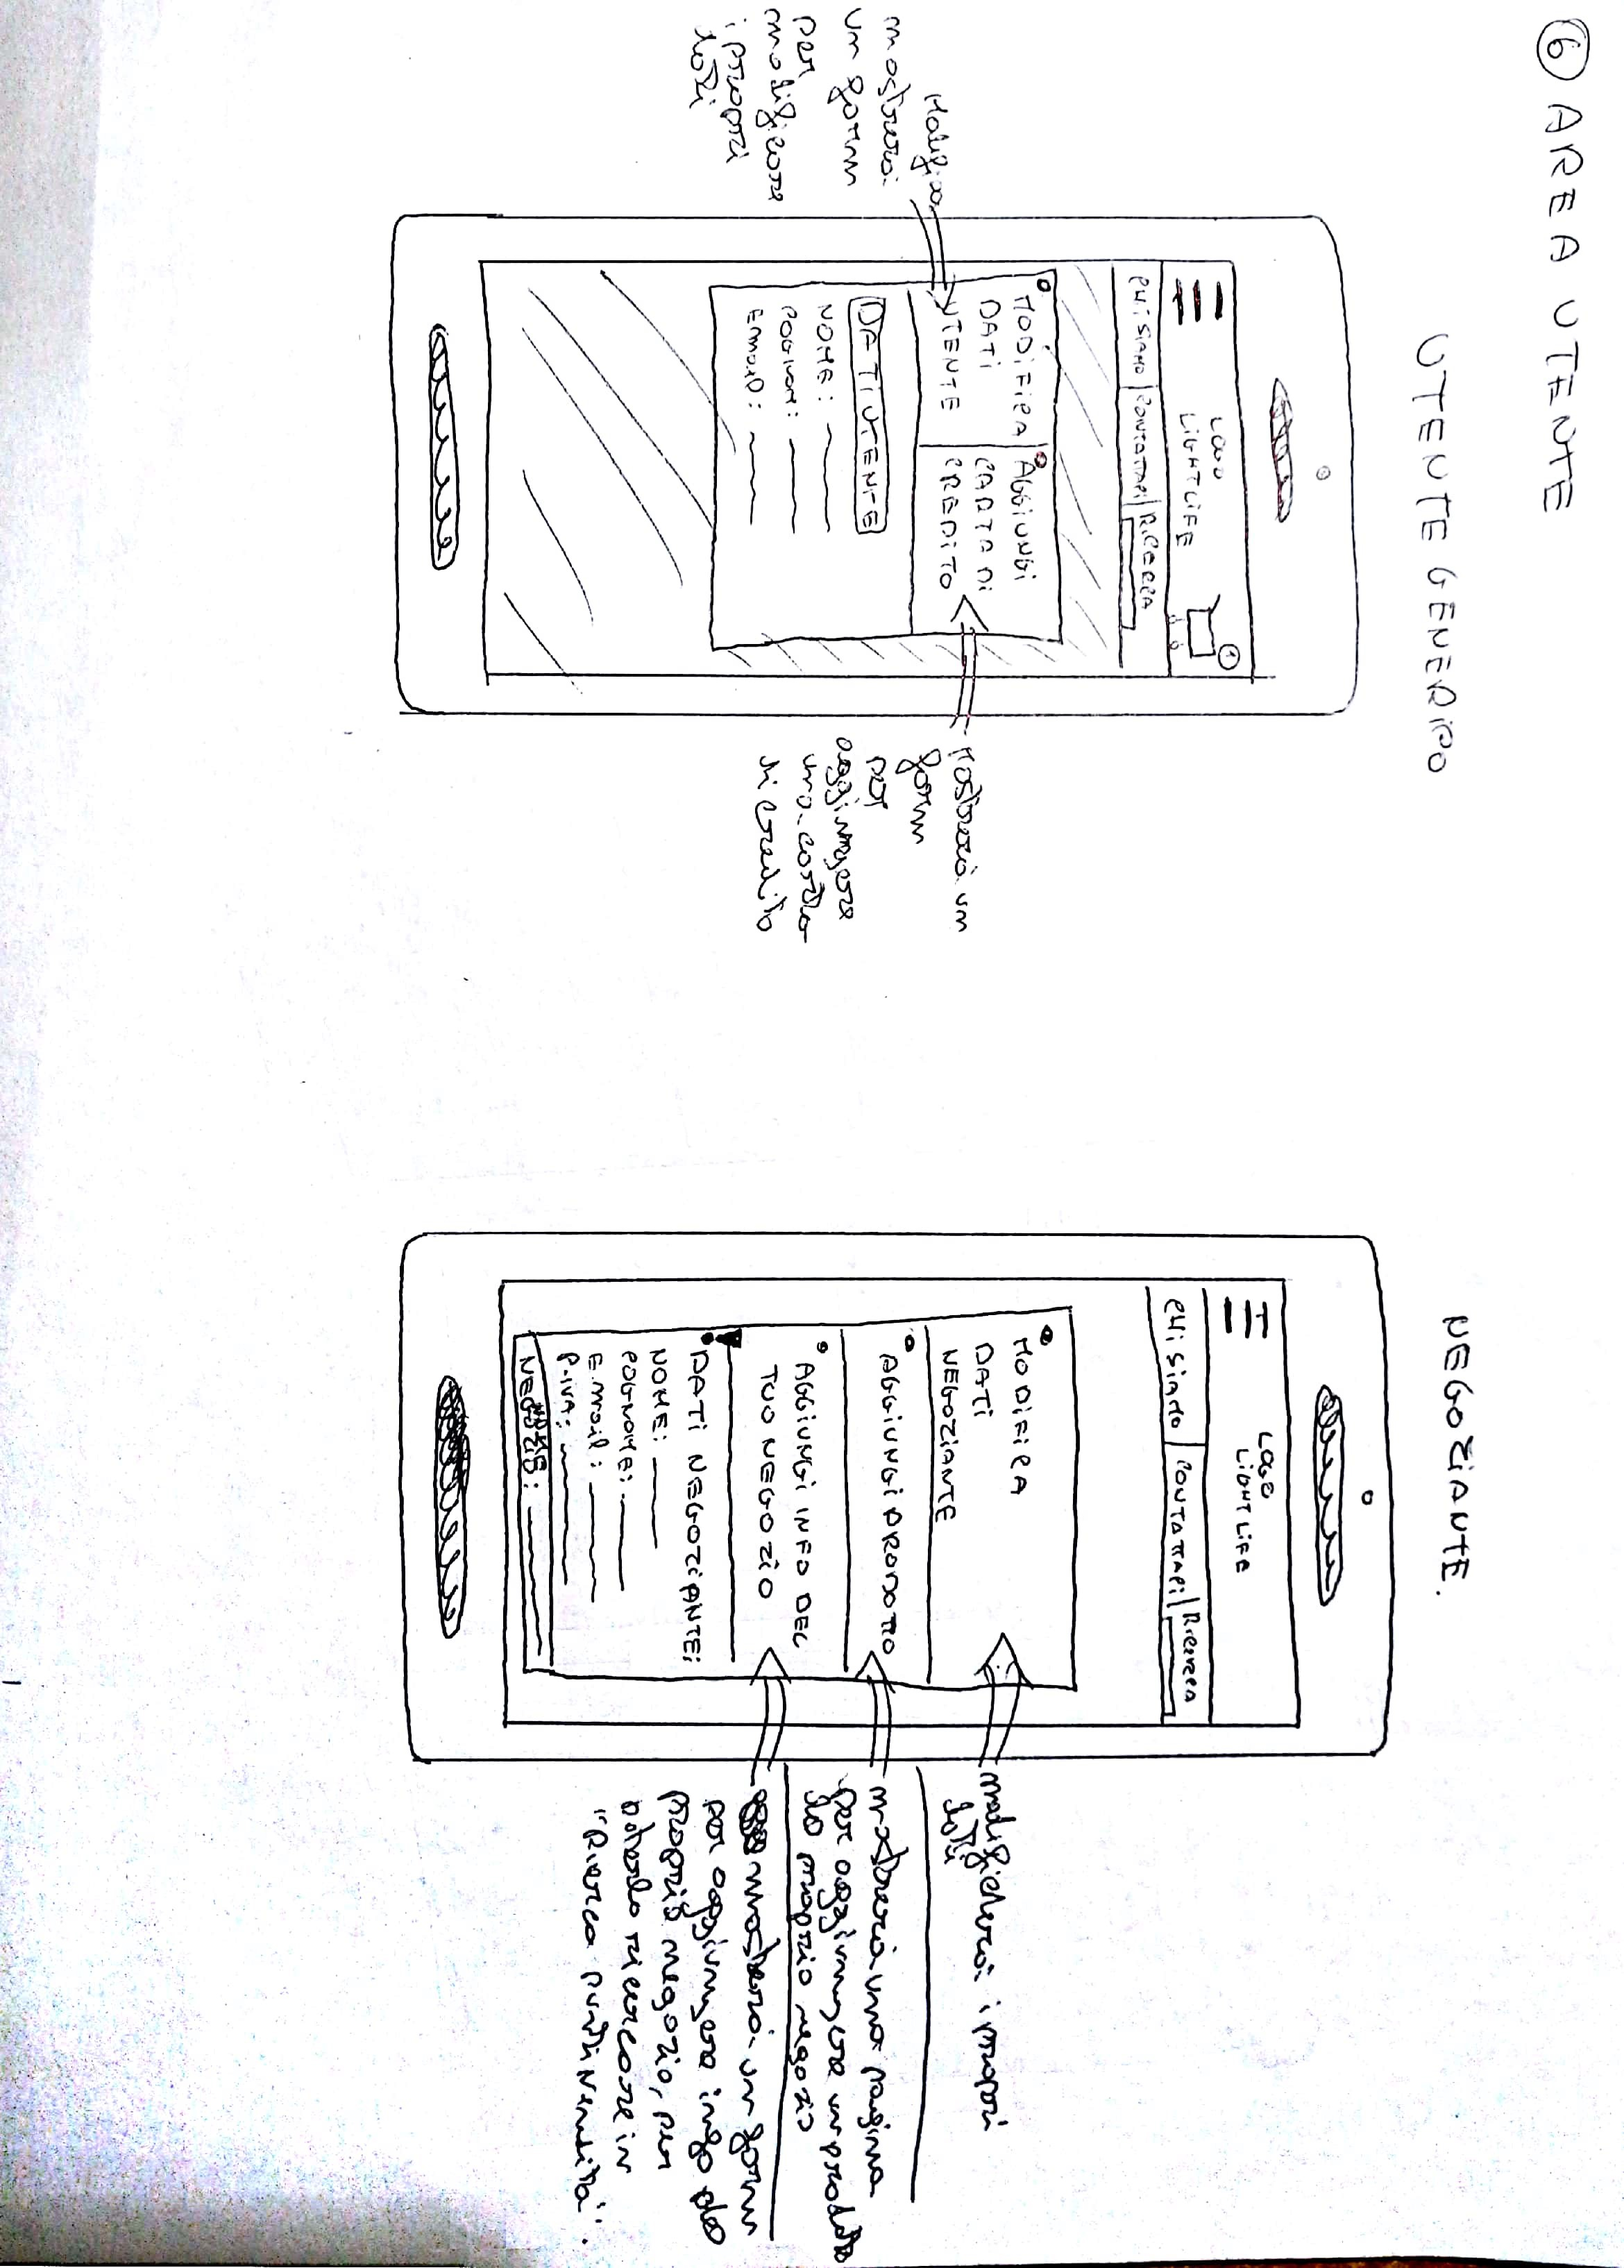 6 AREA UTENTE
UTENTE GENERICO
LOGO
LIGHTLIFE
1
CHI SIAMO | CONTATTACI | RICERCA
MODIFICA
DATI
UTENTE
AGGIUNGI
CARTA DI
CREDITO
DATI UTENTE
NOME:
COGNOME:
Email:
Modifica
mostrerà
un form
per
modificare
i propri
dati
Mostrerà un
form
per
aggiungere
una carta
di credito
NEGOZIANTE.
LOGO
LIGHT LIFE
CHI SIAMO | CONTATTACI | Ricerca
MODIFICA
DATI
NEGOZIANTE
AGGIUNGI PRODOTTO
AGGIUNGI INFO DEL
TUO NEGOZIO
DATI NEGOZIANTE:
NOME:
COGNOME:
Email:
P.IVA:
NEGOZIO:
modificherà i propri
dati
mostrerà una pagina
per aggiungere un prodotto
al proprio negozio
mostrerà un form
per aggiungere info del
proprio negozio, per
poterlo ricercare in
"Ricerca punti vendita".